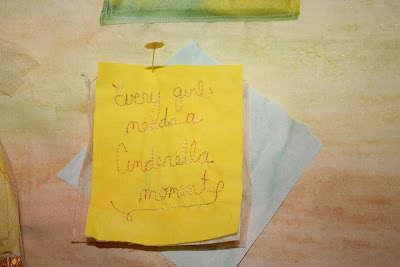 Every girl,
needs a
Cinderella
moment